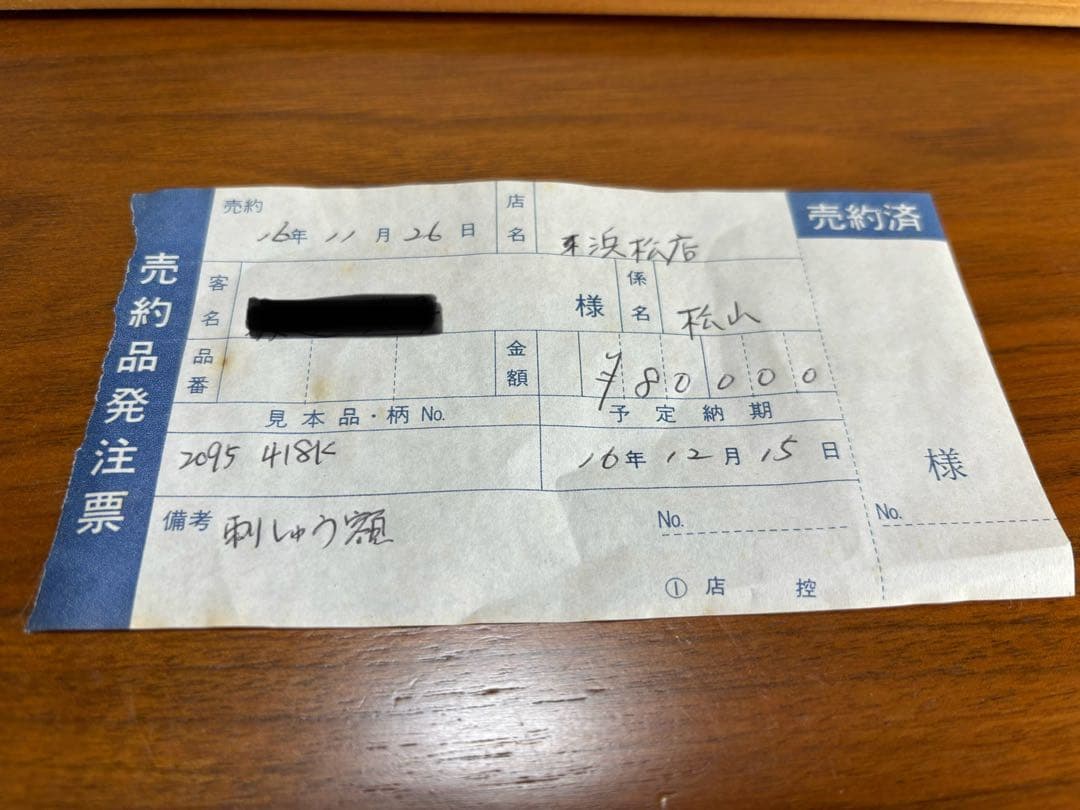 売約品発注票
売約済
売約
16年 11月 26日
店名
浜松店
客名
様
係名
松山
品番
金額
¥80000
見本品・柄No.
予定納期
2095 418K
16年 12月 15日
備考 刺しゅう額
No.
① 店 控
様
No.